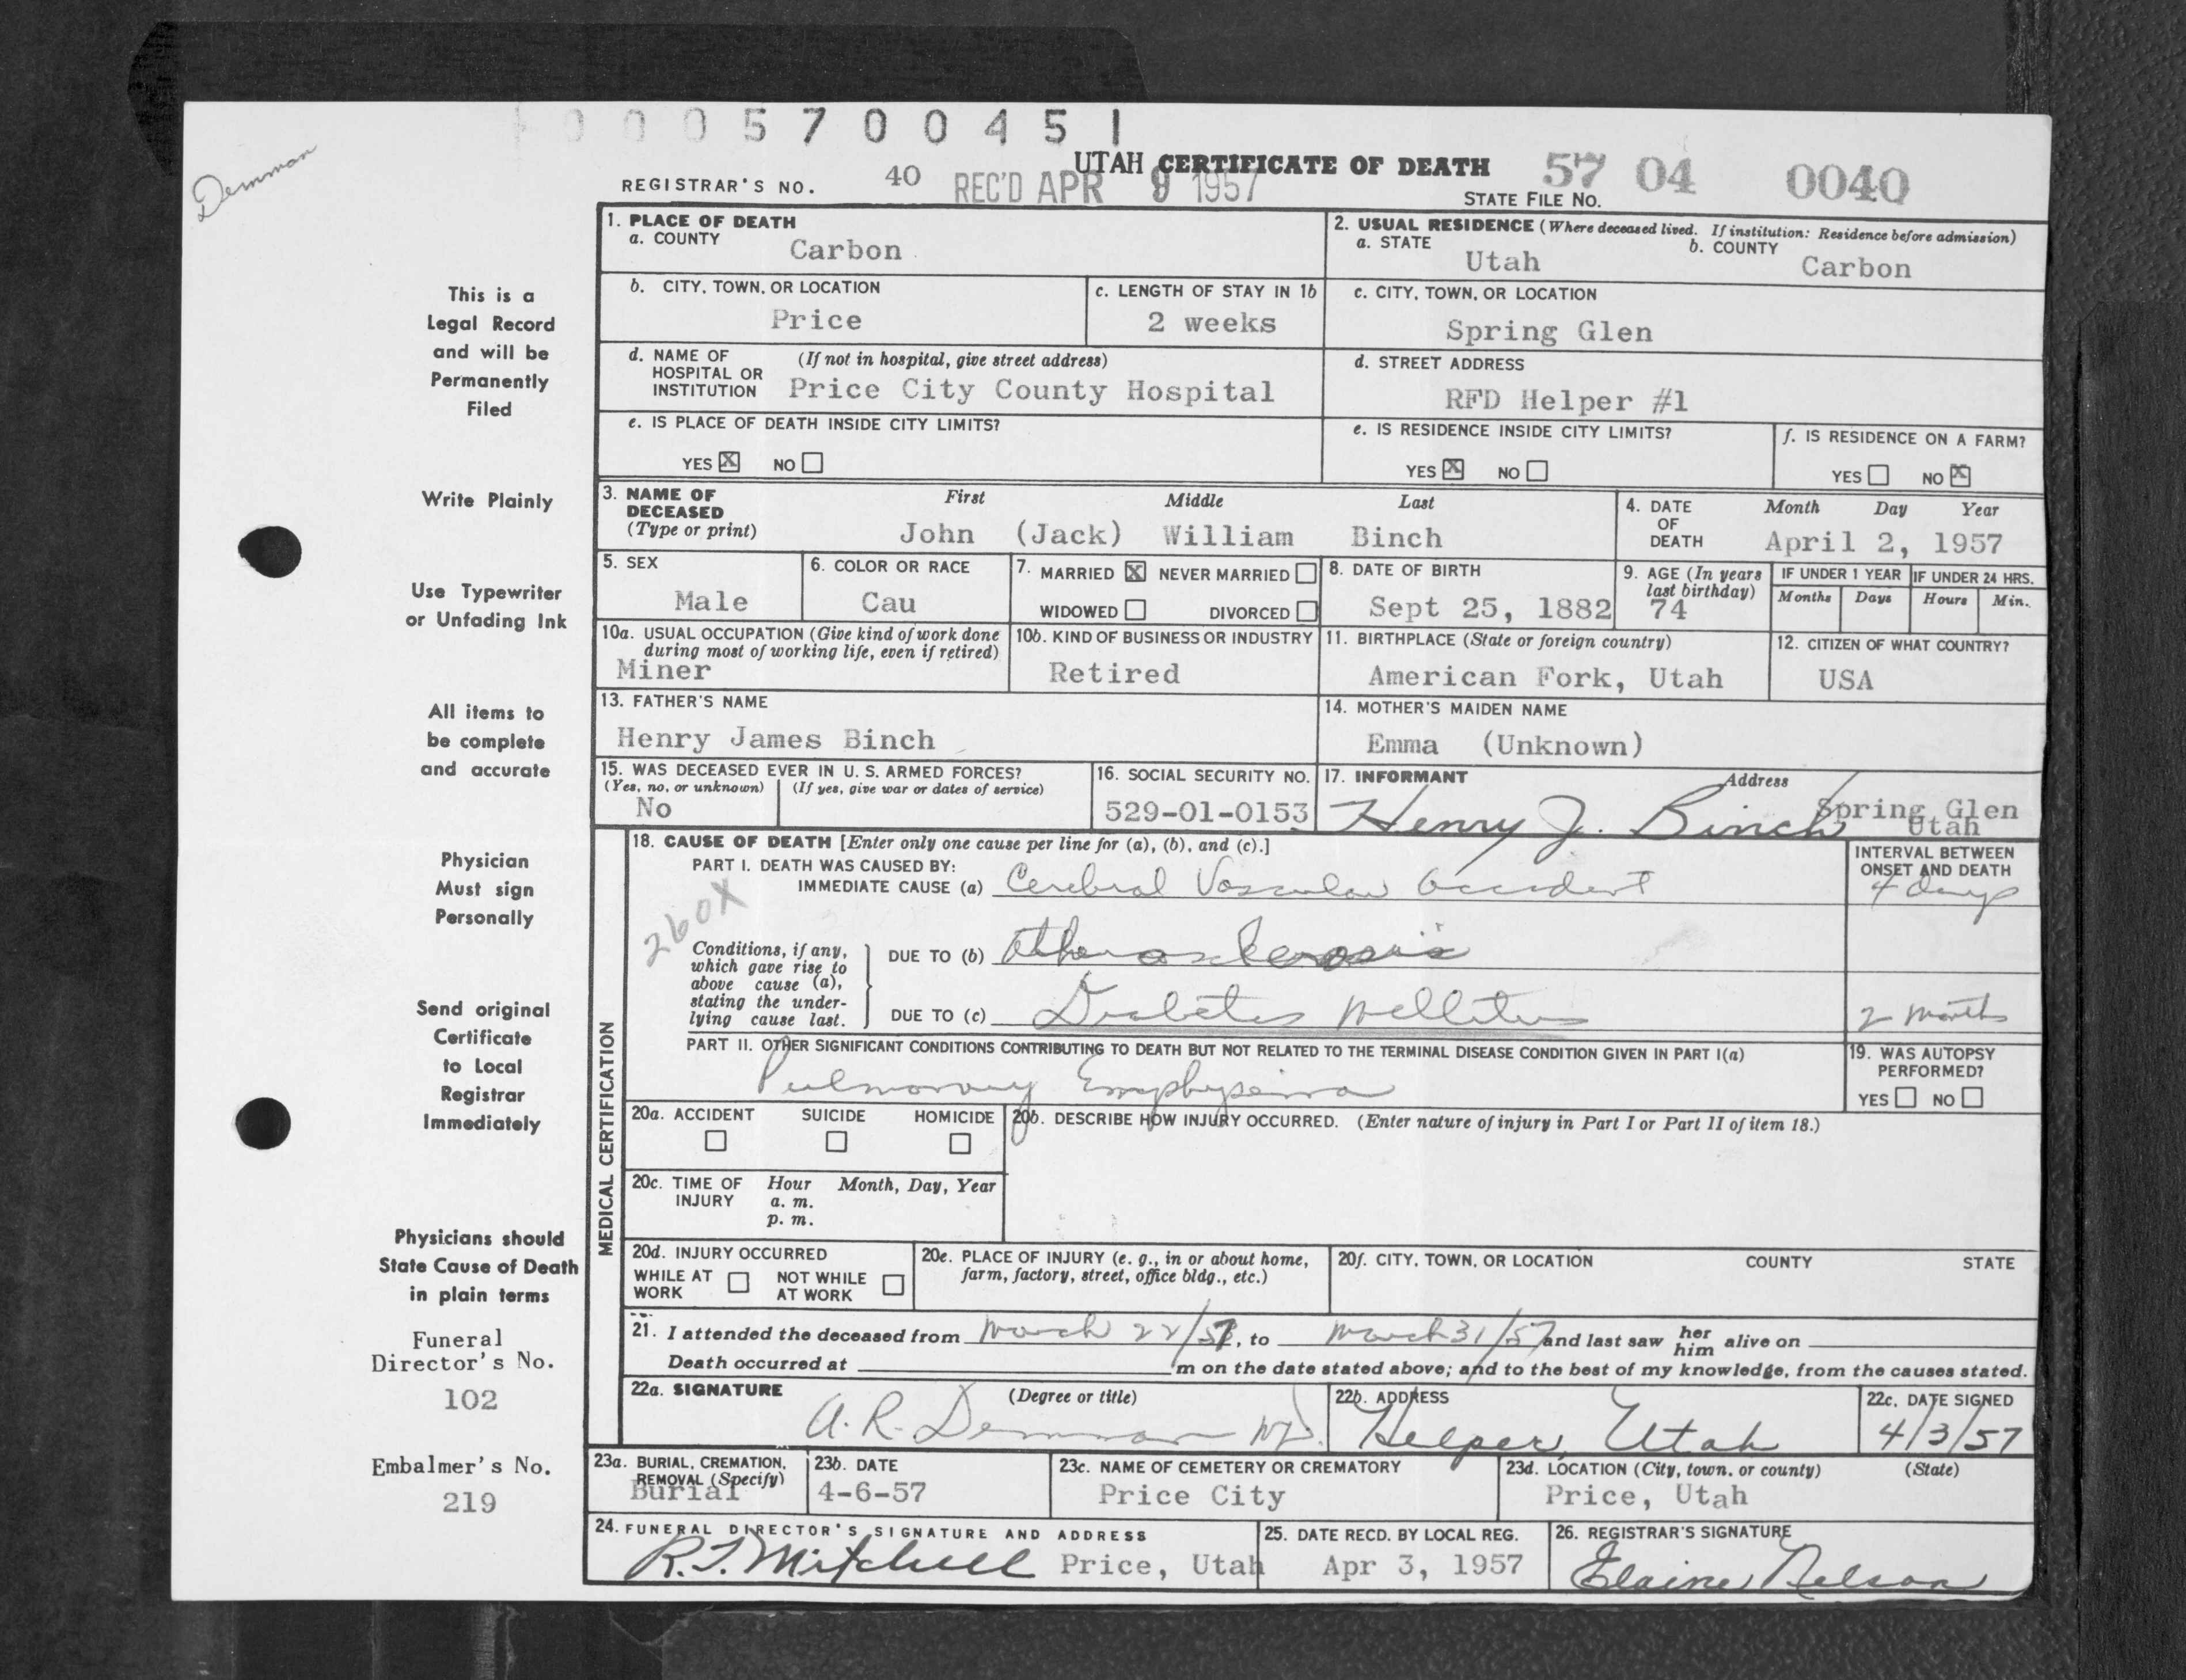 000570 0451
Demman
UTAH CERTIFICATE OF DEATH
REGISTRAR'S NO. 40 REC'D APR 9 1957 STATE FILE NO. 57 04 0040
1. PLACE OF DEATH
a. COUNTY Carbon
2. USUAL RESIDENCE (Where deceased lived. If institution: Residence before admission)
a. STATE Utah b. COUNTY Carbon
b. CITY, TOWN, OR LOCATION Price
c. LENGTH OF STAY IN 1b 2 weeks
c. CITY, TOWN, OR LOCATION Spring Glen
d. NAME OF HOSPITAL OR INSTITUTION (If not in hospital, give street address) Price City County Hospital
d. STREET ADDRESS RFD Helper #1
e. IS PLACE OF DEATH INSIDE CITY LIMITS?
YES X NO
e. IS RESIDENCE INSIDE CITY LIMITS?
YES X NO
f. IS RESIDENCE ON A FARM?
YES NO X
3. NAME OF DECEASED (Type or print) First Middle Last
John (Jack) William Binch
4. DATE OF DEATH Month Day Year
April 2, 1957
5. SEX Male
6. COLOR OR RACE Cau
7. MARRIED X NEVER MARRIED
WIDOWED DIVORCED
8. DATE OF BIRTH Sept 25, 1882
9. AGE (In years last birthday) 74
IF UNDER 1 YEAR Months Days
IF UNDER 24 HRS. Hours Min.
10a. USUAL OCCUPATION (Give kind of work done during most of working life, even if retired)
Miner
10b. KIND OF BUSINESS OR INDUSTRY
Retired
11. BIRTHPLACE (State or foreign country)
American Fork, Utah
12. CITIZEN OF WHAT COUNTRY?
USA
13. FATHER'S NAME
Henry James Binch
14. MOTHER'S MAIDEN NAME
Emma (Unknown)
15. WAS DECEASED EVER IN U. S. ARMED FORCES?
(Yes, no, or unknown) (If yes, give war or dates of service)
No
16. SOCIAL SECURITY NO.
529-01-0153
17. INFORMANT Address
Henry J. Binch Spring Glen
Utah
MEDICAL CERTIFICATION
18. CAUSE OF DEATH [Enter only one cause per line for (a), (b), and (c).]
PART I. DEATH WAS CAUSED BY:
IMMEDIATE CAUSE (a) Cerebral Vascular Accident
INTERVAL BETWEEN ONSET AND DEATH
4 days
260X
Conditions, if any, which gave rise to above cause (a), stating the underlying cause last.
DUE TO (b) Atherosclerosis
DUE TO (c) Diabetes Mellitus 2 months
PART II. OTHER SIGNIFICANT CONDITIONS CONTRIBUTING TO DEATH BUT NOT RELATED TO THE TERMINAL DISEASE CONDITION GIVEN IN PART I(a)
Pulmonary Emphysema
19. WAS AUTOPSY PERFORMED?
YES NO
20a. ACCIDENT SUICIDE HOMICIDE
20b. DESCRIBE HOW INJURY OCCURRED. (Enter nature of injury in Part I or Part II of item 18.)
20c. TIME OF INJURY Hour Month, Day, Year
a. m.
p. m.
20d. INJURY OCCURRED
WHILE AT WORK NOT WHILE AT WORK
20e. PLACE OF INJURY (e. g., in or about home, farm, factory, street, office bldg., etc.)
20f. CITY, TOWN, OR LOCATION COUNTY STATE
21. I attended the deceased from March 22/57, to March 31/57 and last saw her him alive on
Death occurred at m on the date stated above; and to the best of my knowledge, from the causes stated.
22a. SIGNATURE (Degree or title)
A. R. Demman MD.
22b. ADDRESS
Helper, Utah
22c. DATE SIGNED
4/3/57
23a. BURIAL, CREMATION, REMOVAL (Specify)
Burial
23b. DATE
4-6-57
23c. NAME OF CEMETERY OR CREMATORY
Price City
23d. LOCATION (City, town, or county) (State)
Price, Utah
24. FUNERAL DIRECTOR'S SIGNATURE AND ADDRESS
R.J. Mitchell Price, Utah
25. DATE RECD. BY LOCAL REG.
Apr 3, 1957
26. REGISTRAR'S SIGNATURE
Elaine Nelson
This is a
Legal Record
and will be
Permanently
Filed
Write Plainly
Use Typewriter
or Unfading Ink
All items to
be complete
and accurate
Physician
Must sign
Personally
Send original
Certificate
to Local
Registrar
Immediately
Physicians should
State Cause of Death
in plain terms
Funeral
Director's No.
102
Embalmer's No.
219